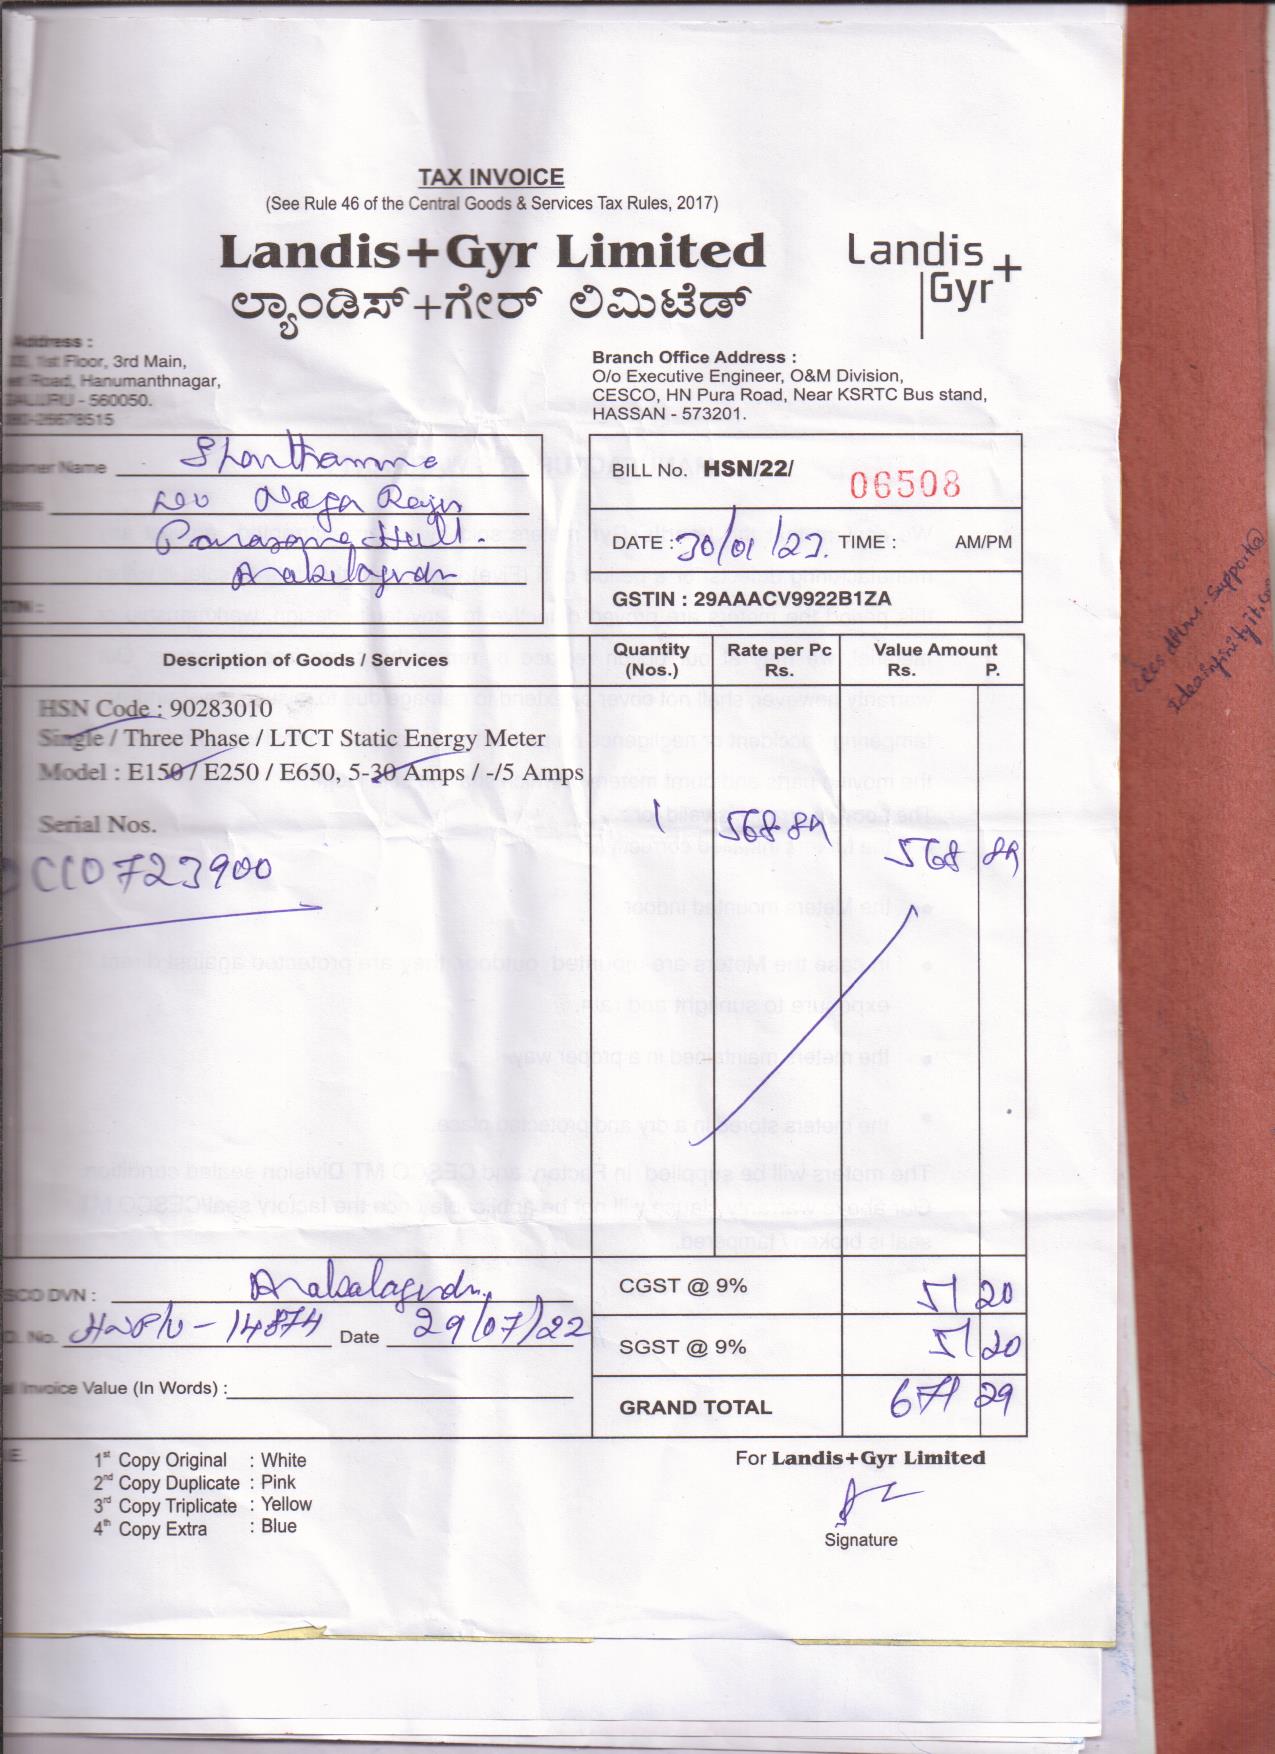 TAX INVOICE
(See Rule 46 of the Central Goods & Services Tax Rules, 2017)
Landis+Gyr Limited
ಲ್ಯಾಂಡಿಸ್+ಗೇರ್ ಲಿಮಿಟೆಡ್
Landis
Gyr+
Address :
1st Floor, 3rd Main,
Road, Hanumanthnagar,
- 560050.
26678515
Branch Office Address :
O/o Executive Engineer, O&M Division,
CESCO, HN Pura Road, Near KSRTC Bus stand,
HASSAN - 573201.
Name Shanthamma
Naga Raju
BILL No. HSN/22/ 06508
DATE : 30/01/23. TIME : AM/PM
GSTIN : 29AAACV9922B1ZA
Description of Goods / Services
Quantity (Nos.)
Rate per Pc Rs.
Value Amount Rs. P.
HSN Code : 90283010
Single / Three Phase / LTCT Static Energy Meter
Model : E150 / E250 / E650, 5-30 Amps / -/5 Amps
Serial Nos.
1 568 89 568 89
CC0723900
DVN :
No. 14874 Date 29/07/22
Invoice Value (In Words) :
CGST @ 9% 51 20
SGST @ 9% 51 20
GRAND TOTAL 671 29
1st Copy Original : White
2nd Copy Duplicate : Pink
3rd Copy Triplicate : Yellow
4th Copy Extra : Blue
For Landis+Gyr Limited
Signature